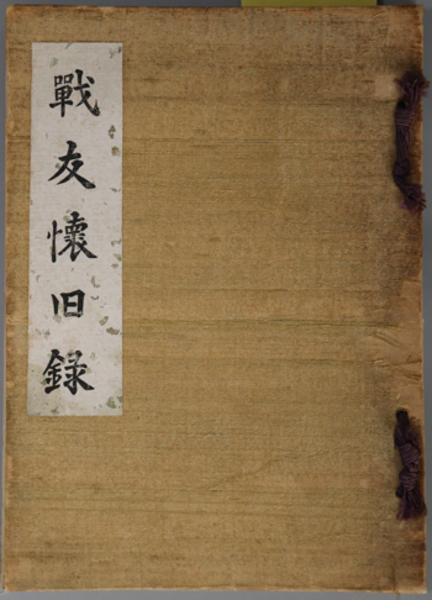 戰友懷旧録